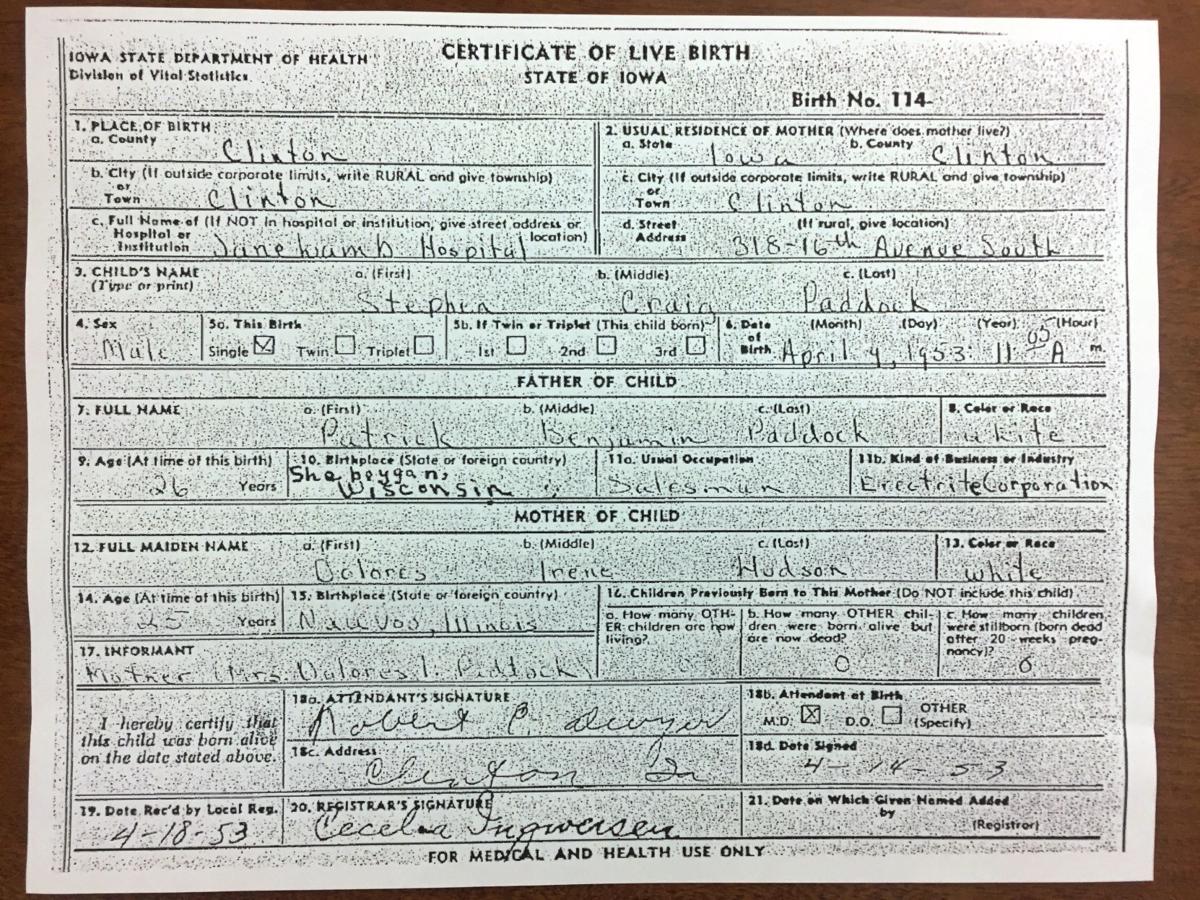 IOWA STATE DEPARTMENT OF HEALTH
Division of Vital Statistics
CERTIFICATE OF LIVE BIRTH
STATE OF IOWA
Birth No. 114-
1. PLACE OF BIRTH
a. County
Clinton
b. City (If outside corporate limits, write RURAL and give township)
or
Town
Clinton
c. Full Name of (If NOT in hospital or institution, give street address or location)
Hospital or
Institution
Jane Lamb Hospital
2. USUAL RESIDENCE OF MOTHER (Where does mother live?)
a. State b. County
Iowa Clinton
c. City (If outside corporate limits, write RURAL and give township)
or
Town
Clinton
d. Street (If rural, give location)
Address
318-16th Avenue South
3. CHILD'S NAME a. (First) b. (Middle) c. (Last)
(Type or print)
Stephen Craig Paddock
4. Sex
Male
5a. This Birth
Single ☒ Twin ☐ Triplet ☐
5b. If Twin or Triplet (This child born)
1st ☐ 2nd ☐ 3rd ☐
6. Date (Month) (Day) (Year) (Hour)
of
Birth
April 9, 1953 11 05 A m.
FATHER OF CHILD
7. FULL NAME a. (First) b. (Middle) c. (Last)
Patrick Benjamin Paddock
8. Color or Race
white
9. Age (At time of this birth)
26 Years
10. Birthplace (State or foreign country)
Sheboygan,
Wisconsin
11a. Usual Occupation
Salesman
11b. Kind of Business or Industry
Corporation
MOTHER OF CHILD
12. FULL MAIDEN NAME a. (First) b. (Middle) c. (Last)
Dolores Irene Hudson
13. Color or Race
white
14. Age (At time of this birth)
25 Years
15. Birthplace (State or foreign country)
Nauvoo, Illinois
16. Children Previously Born to This Mother (Do NOT include this child)
a. How many OTH-
ER children are now
living?
b. How many OTHER chil-
dren were born alive but
are now dead?
0
c. How many children
were stillborn (born dead
after 20 weeks preg-
nancy)?
0
17. INFORMANT
Mother (Mrs. Dolores I. Paddock)
I hereby certify that
this child was born alive
on the date stated above.
18a. ATTENDANT'S SIGNATURE
Robert C. Dwyer
18b. Attendant at Birth
M.D. ☒ D.O. ☐ OTHER
(Specify)
18c. Address
Clinton Ia
18d. Date Signed
4-14-53
19. Date Rec'd by Local Reg.
4-18-53
20. REGISTRAR'S SIGNATURE
Cecelia Ingwersen
21. Date on Which Given Named Added
by
(Registrar)
FOR MEDICAL AND HEALTH USE ONLY